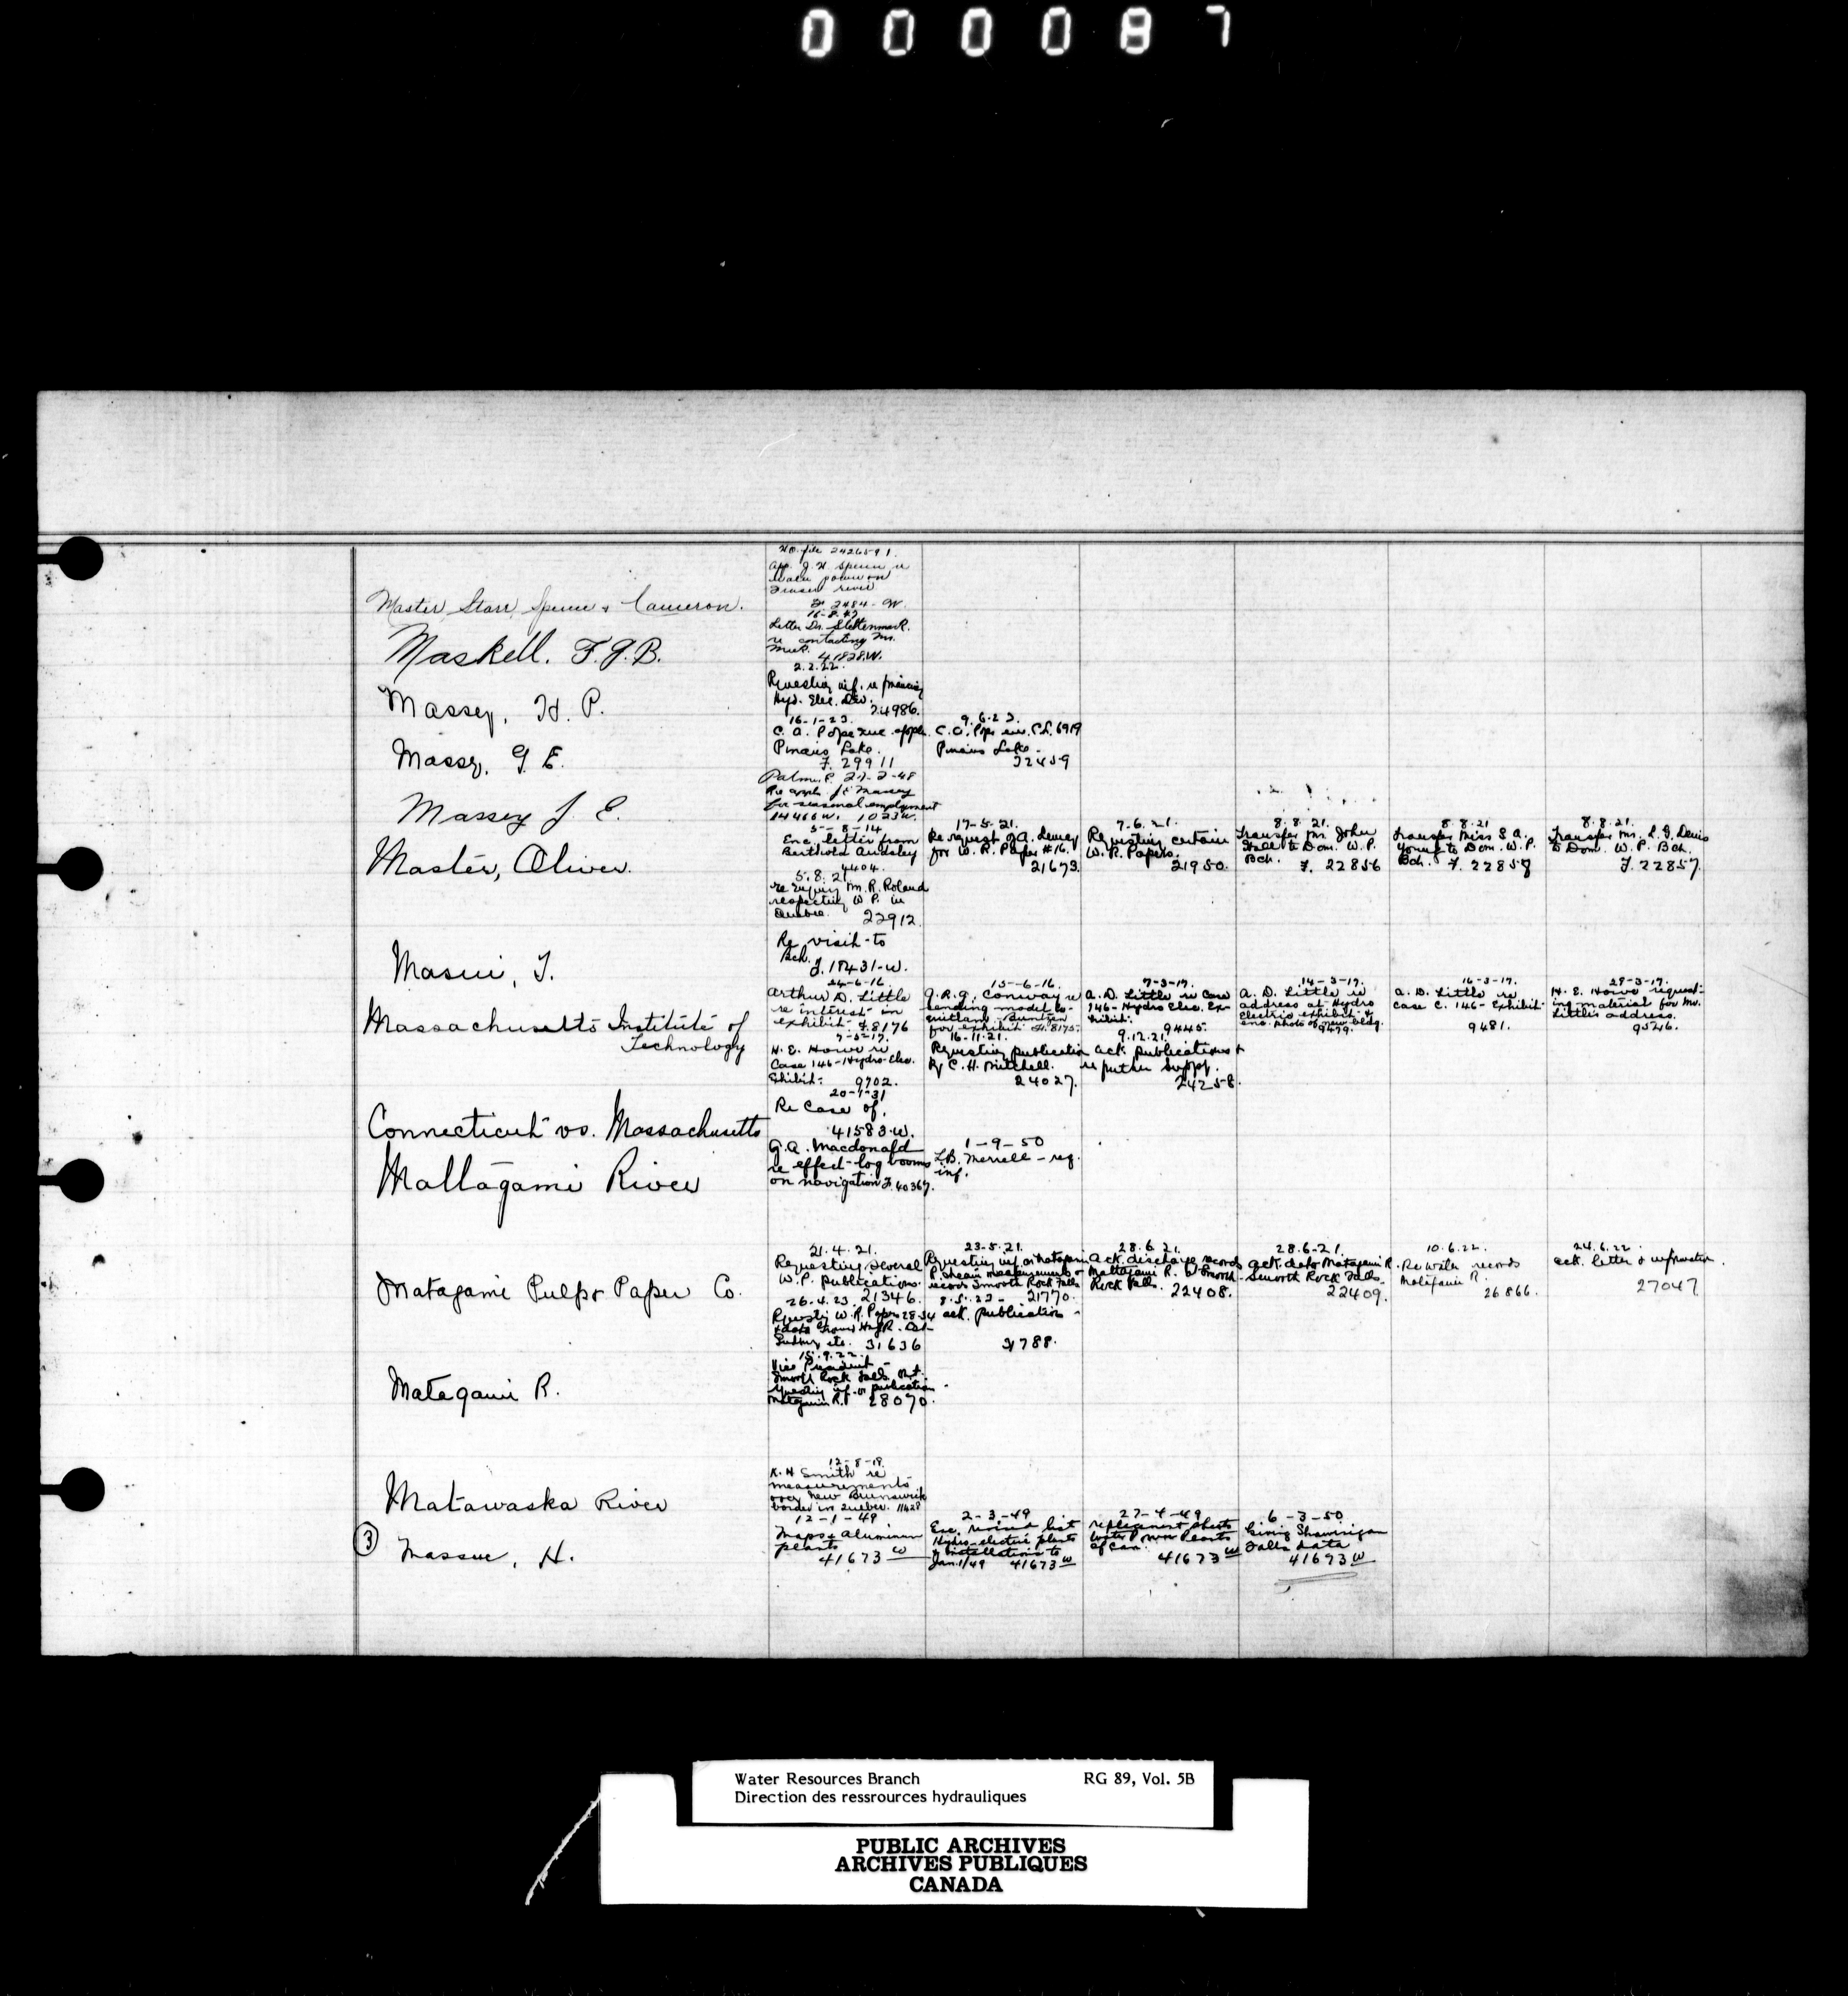 000087
Master, Starr, Spence & Cameron.
H.O. file 2426591.
App. J. H. Spence re
Water power on
Fraser river
F. 2484-W.
Maskell. F.J.B.
Letter Dr.
re contacting Mr.
41828.W.
Massey, H. P.
2.2.22.
Requesting inf. re financing
Hyd. Elec. Dev.
24986.
Massey, G. E.
16-1-23.
C. A. Pope enc. appln.
Pinaus Lake.
F. 29911
9.6.23.
C.A. Pope enc. C.L. 6919
Pinaus Lake.
32459
Massey J E.
27-2-48
Re appln. J E Massey
for seasonal employment
14466W. 1023W.
Master, Oliver.
5-8-14
Enc. letter from
Berthold Audsley
4404.
17-5-21.
Re request of A. Dewey
for W. R. Paper #16.
21673.
7.6.21.
Requesting certain
W. R. Papers.
21950.
8.8.21.
Transfer Mr. John
to Dom. W.P.
Bch. F. 22856
8.8.21
Transfer Miss S. A.
Young to Dom. W.P.
Bch. F. 22858
8.8.21.
Transfer Mr. L. G. Denis
to Dom. W. P. Bch.
F. 22857.
5.8.21
re enquiry Mr. R. Roland
respecting W. P. in
Quebec. 22912
Masui, T.
Re visit to
Bch.
F. 18431-W.
Massachusetts Institute of
Technology
24-6-16.
Arthur D. Little
re interest in
exhibit. F. 8176
15-6-16.
G.R.G. Conway re
sending model Co-
quitlam-Buntzen
for exhibit. F. 8175.
7-3-17.
A. D. Little re Case
146-Hydro Elec. Ex-
hibit. 9445.
14-3-17.
A. D. Little re
address at Hydro
Electric exhibit &
enc. photo of new bldg.
9479.
16-3-17.
A. D. Little re
case C. 146-Exhibit
9481.
29-3-17.
H. E. Howe request-
ing material for Mr.
Little's address.
9526.
H. E. Howe re
Case 146-Hydro-Elec.
Exhibit. 9702.
16-11-21.
Requesting publication
by C. H. Mitchell.
24027.
9.12.21.
Ack. publications &
re further supply.
24258.
Connecticut vs. Massachusetts
20-1-31
Re Case of.
41583.W.
Mattagami River
G.A. Macdonald
re effect log booms
on navigation F. 40367.
1-9-50
L.B. Merrell - req.
inf.
Matagami Pulp & Paper Co.
21.4.21.
Requesting several
W. P. publications.
21346.
23-5-21.
Requesting inf. on Matagami
R. stream measurements &
records Smooth Rock Falls
21770.
28.6.21.
Ack. discharge records
Mattagami R. @ Smooth
Rock Falls. 22408.
28.6-21.
Ack. data Matagami R.
Smooth Rock Falls.
22409.
10.6.22.
Re water records
Matagami R.
26866.
24.6.22.
Ack. letter & information.
27047
26.4.23.
Requesting W. R. Papers 28-34
31636
8.5.23-
ack. publication
31788.
Matagami R.
15.9.22.
Vice President -
Smooth Rock Falls, Ont.
requesting inf. or publication
Matagami R. 28070.
Matawaska River
12-8-18.
K. H. Smith re
measurements
over New Brunswick
border in Quebec. 11428
3
Massue, H.
12-1-49
Maps & Aluminum
plants
41673 W
2-3-49
Enc. revised list
Hydro-electric plants
& installations to
Jan. 1/49 41673 W
27-4-49
replacement sheets
Water Power Plants
of Can. 41673 W
6-3-50
Giving Shawinigan
Falls data
41673 W
Water Resources Branch RG 89, Vol. 5B
Direction des ressrources hydrauliques
PUBLIC ARCHIVES
ARCHIVES PUBLIQUES
CANADA